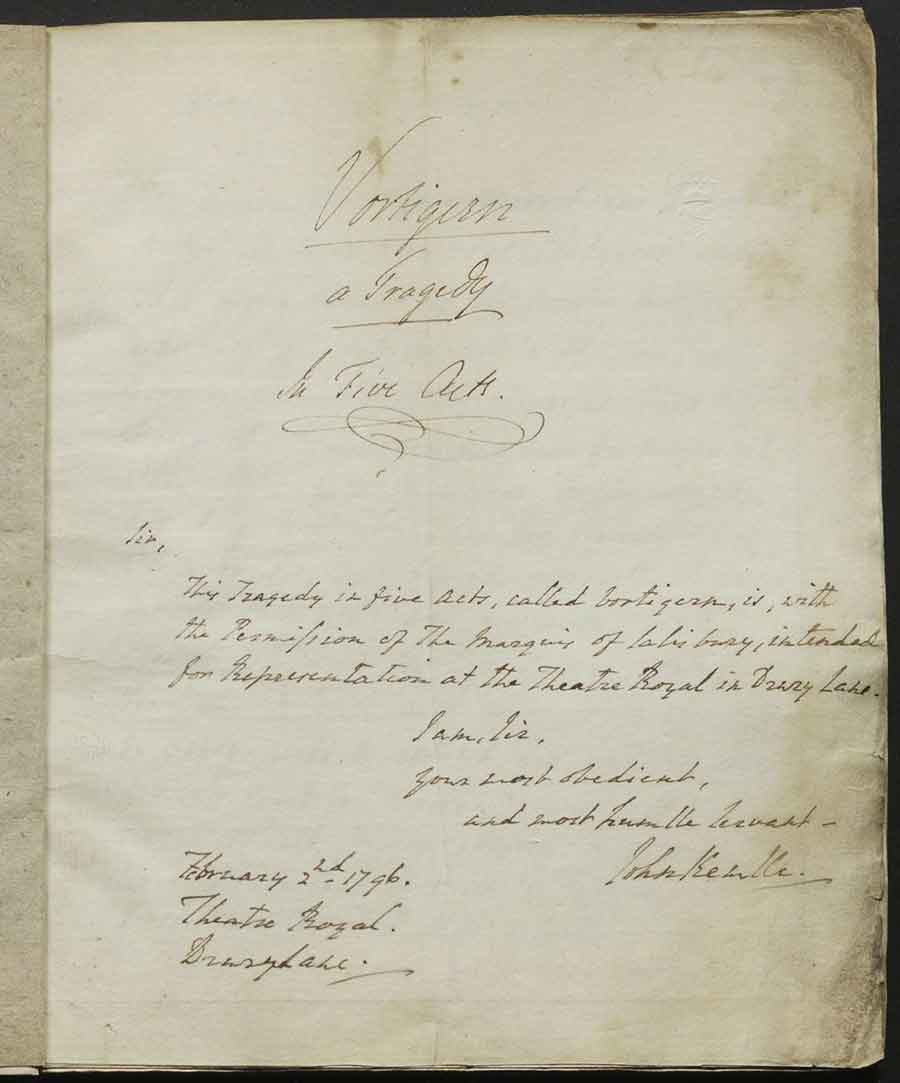 Vortigern
a Tragedy
In Five Acts.
Sir,
This Tragedy in five Acts, called Vortigern, is, with
the Permission of The Marquis of Salisbury, intended
for Representation at the Theatre Royal in Drury Lane.
I am, Sir,
your most obedient,
and most humble Servant –
John Kemble.
February 2nd 1796.
Theatre Royal.
Drury Lane.